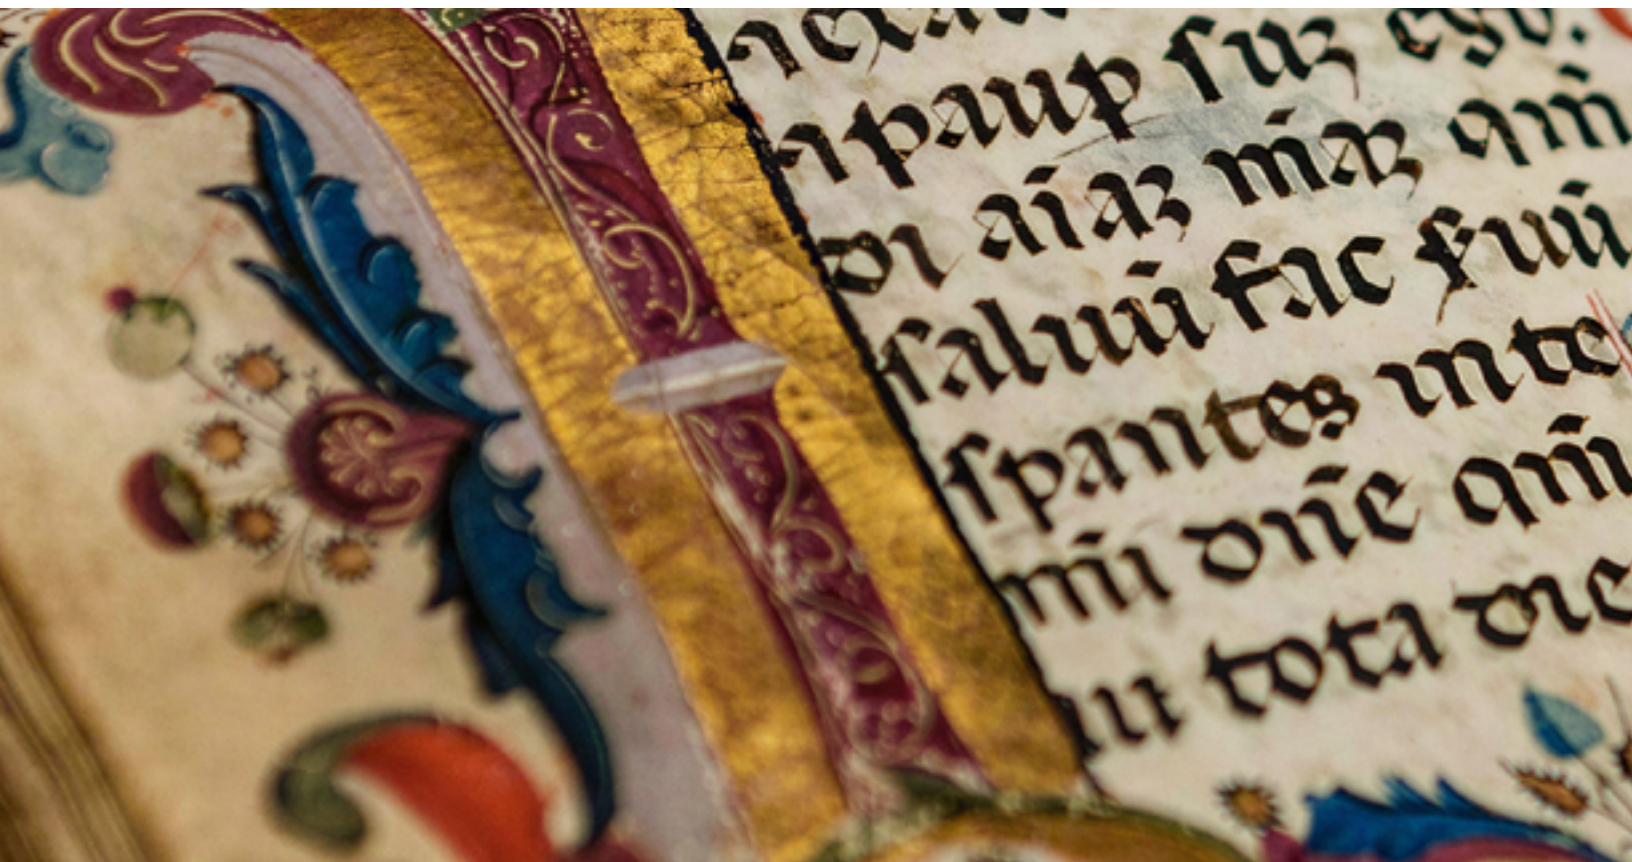 paup suz ego.
di aīaz māz qm̄
saluū fac
sperantes in te
mi dn̄e qm̄
tota die